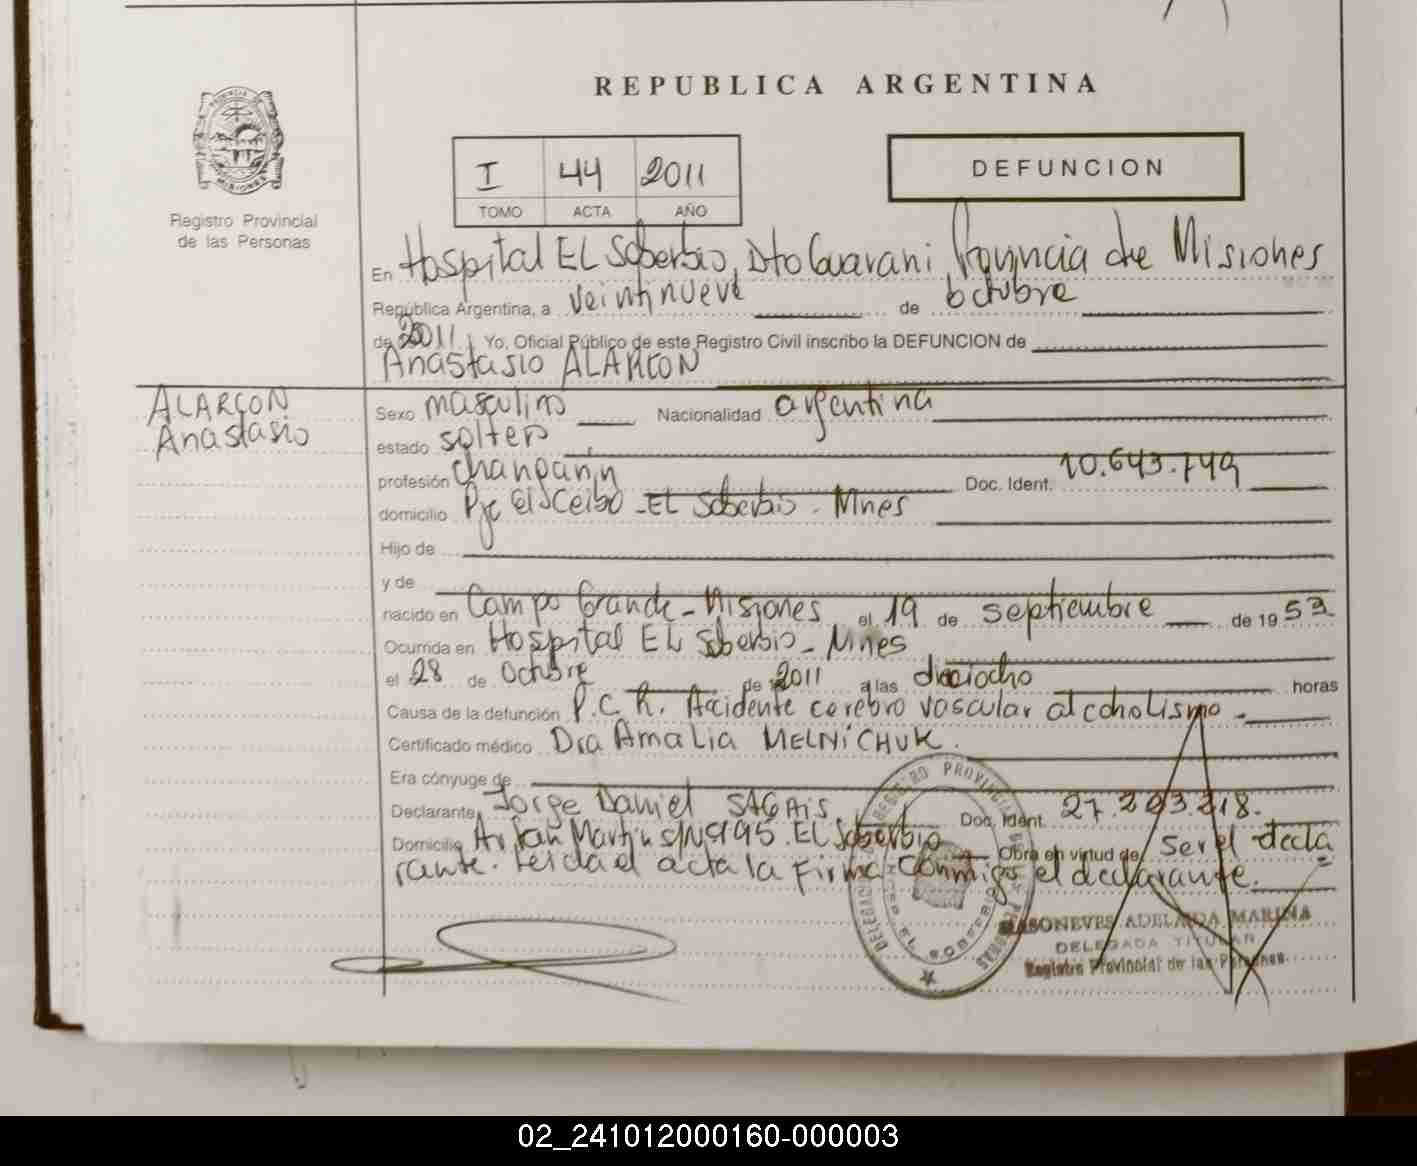 REPUBLICA ARGENTINA
I 44 2011
TOMO ACTA AÑO
DEFUNCION
Registro Provincial
de las Personas
En Hospital EL Soberbio, Dto Guarani, Provincia de Misiones
República Argentina, a veintinueve de octubre
de 2011 Yo, Oficial Público de este Registro Civil inscribo la DEFUNCION de
Anastasio ALARCON
ALARCON
Anastasio
Sexo masculino Nacionalidad argentina
estado soltero
profesión changarin Doc. Ident. 10.643.749
domicilio Pje El Ceibo - EL Soberbio - Mnes
Hijo de
y de
nacido en Campo Grande - Misiones el 19 de septiembre de 19 53
Ocurrida en Hospital EL Soberbio - Mnes
el 28 de octubre de 2011 a las dieciocho horas
Causa de la defunción P.C.R. Accidente cerebro vascular alcoholismo -
Certificado médico Dra Amalia MELNICHUK.
Era cónyuge de
Declarante Jorge Daniel Doc. Ident. 27.293.218.
Domicilio Av San Martin S/N EL Soberbio Obra en virtud de ser el decla
rante. Leida el acta la firma conmigo el declarante.
ADELAIDA MARINA
DELEGADA TITULAR
Registro Provincial de las Personas
02_241012000160-000003